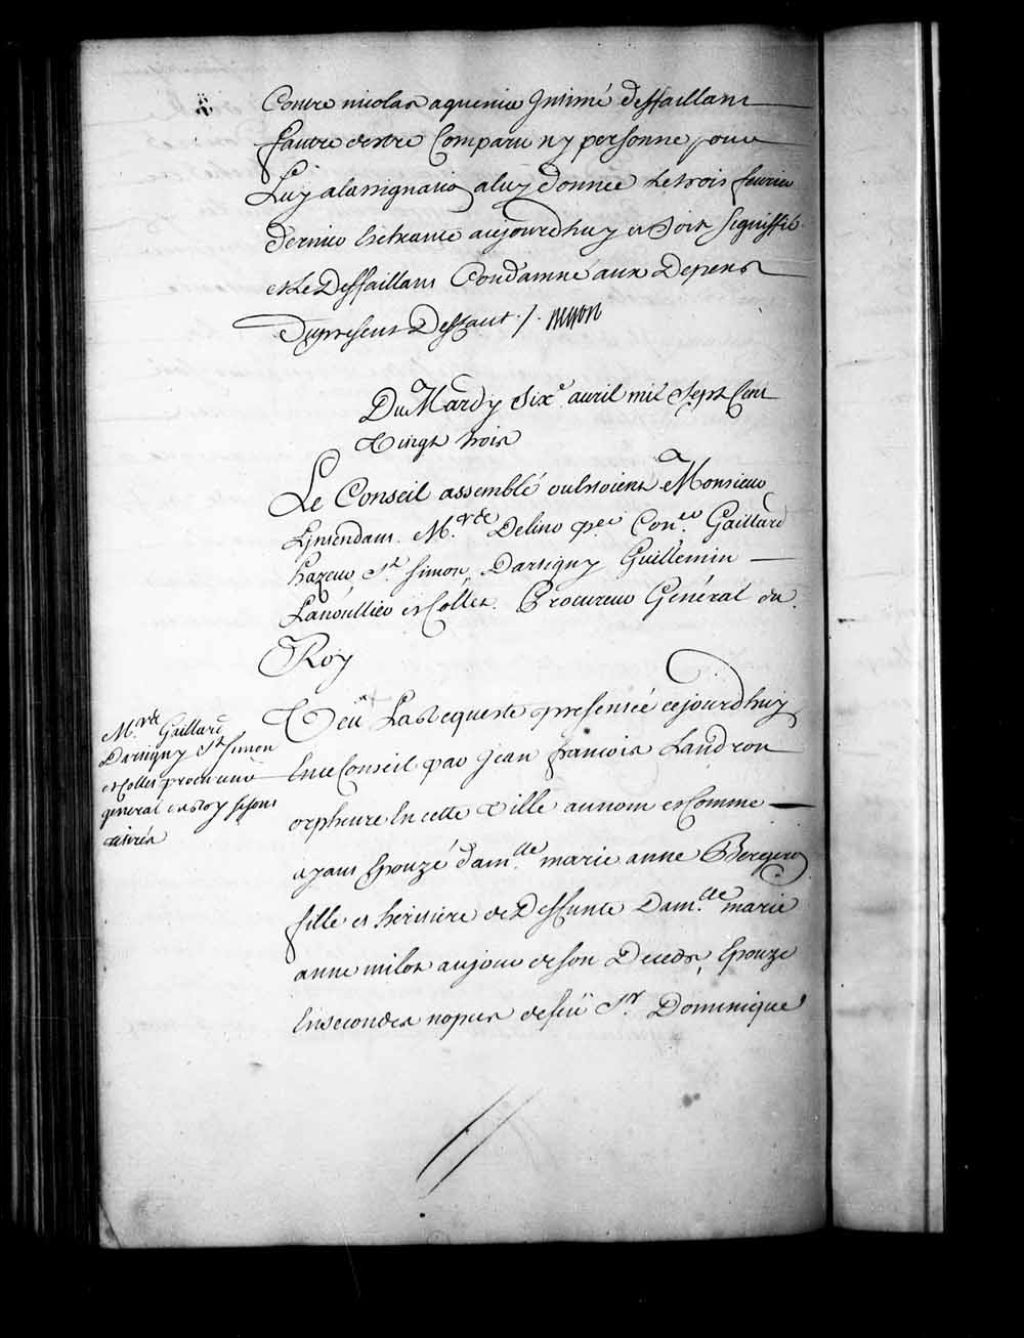 Contre nicolas aquenin Intimé deffaillant
faute destre Comparu ny personne pour
Luy alassignaõn aluy donnée Le trois fevrier
dernier Echeante aujourdhuy et Soit Signiffié
et Le Deffaillant Condamné aux Depens
Dupresent Deffaut /.
Du Mardy Six.e avril mil Sept Cent
Vingt trois
Le Conseil assemblé ou Estoient Monsieur
Lintendant. M.rs de Delino p.er Con.er Gaillard
hazeur St. Simon, Dartigny Guillemin
Lanoullier et Collet. Procureur Général du
Roy
M.rs Gaillard
Dartigny St Simon
et Collet procureur
general du Roy se sont
retirés
Veü La Requeste presentée cejourdhuy
Ence Conseil par Jean francois Landron
orpheure En cette Ville aunom et Comme
ayant Epouzé dam.lle marie anne Bergeron
fille et heritiere de Deffunte Dam.lle marie
anne milot aujour de son Deceds, Epouze
Ensecondes nopces de feü Sr. Dominique